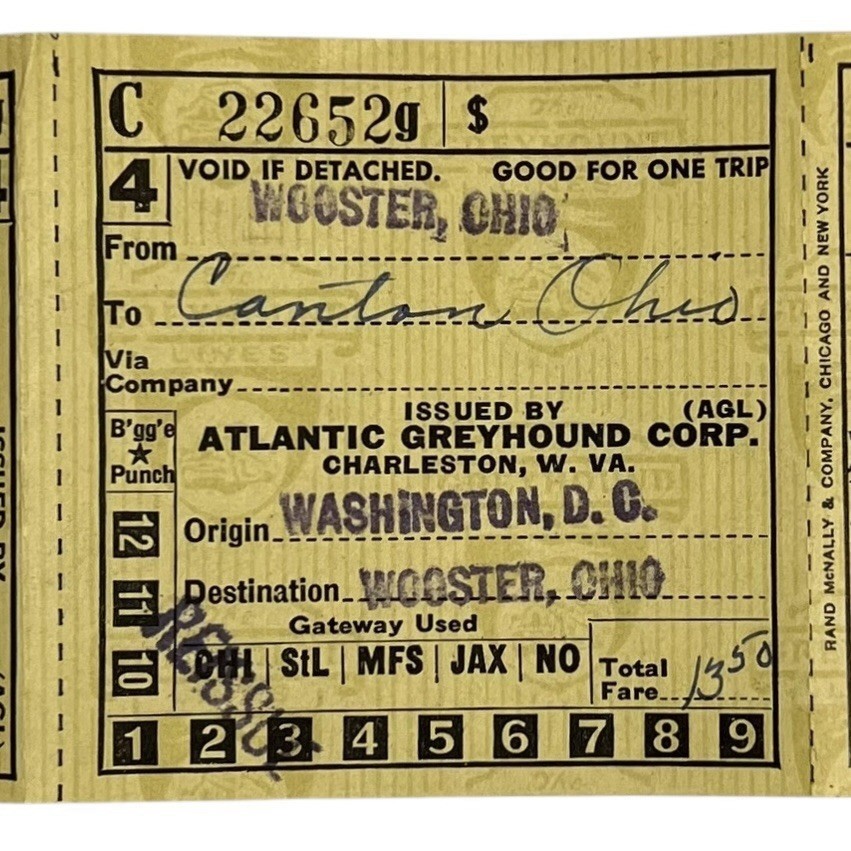 C 22652g $
4 VOID IF DETACHED. GOOD FOR ONE TRIP
WOOSTER, OHIO
From
To Canton Ohio
Via
Company
ISSUED BY (AGL)
B'gg'e ★ Punch
ATLANTIC GREYHOUND CORP.
CHARLESTON, W. VA.
12
Origin WASHINGTON, D. C.
11
Destination WOOSTER, OHIO
REISSUE
Gateway Used
10
CHI | StL | MFS | JAX | NO
Total
Fare 13 50
1 2 3 4 5 6 7 8 9
RAND McNALLY & COMPANY, CHICAGO AND NEW YORK
ISSUED BY